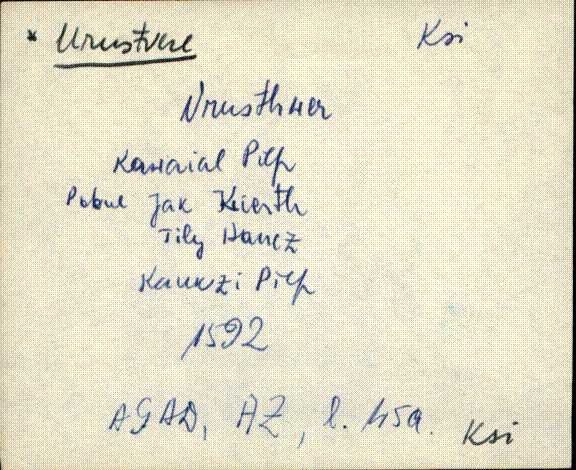 * Urustvere Ksi
Vrusthwer
Kawaial Pilp
Pabul Jak Kiersth
Tily Hancz
Kauwzi Pilp
1592
AGAD, AZ, l. 45a.
Ksi